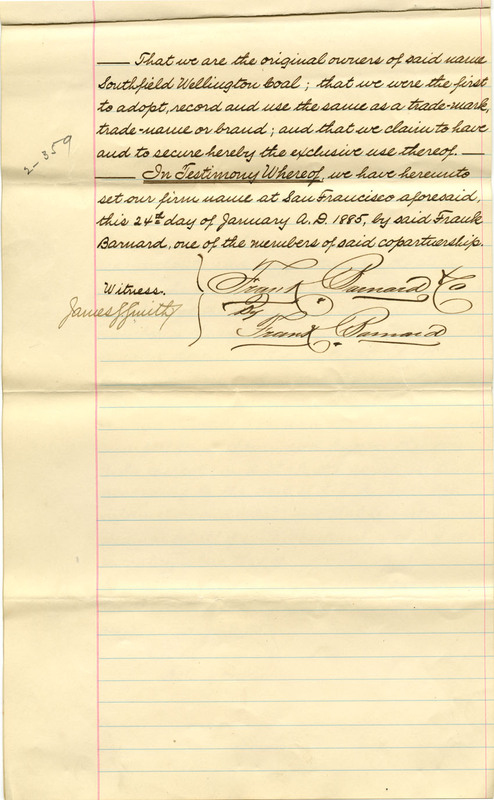 — That we are the original owners of said name
Southfield Wellington Coal; that we were the first
to adopt, record and use the same as a trade-mark,
trade-name or brand; and that we claim to have
and to secure hereby the exclusive use thereof. —
— In Testimony Whereof, we have hereunto
set our firm name at San Francisco aforesaid,
this 24th day of January A.D. 1885, by said Frank
Barnard, one of the members of said copartnership.
2-359
Witness.
James L Smith
Frank Barnard & Co
By
Frank Barnard